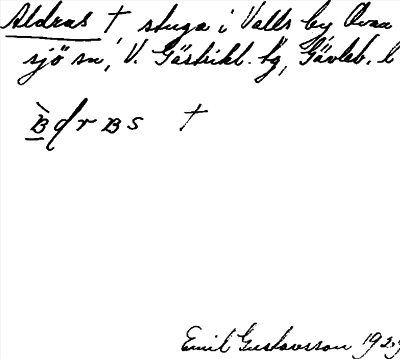 Aldras †, stuga i Valls by, Ova
sjö sn, V. Gästrikl. tg, Gävleb. l
B d r B s †
Emil Gustavsson